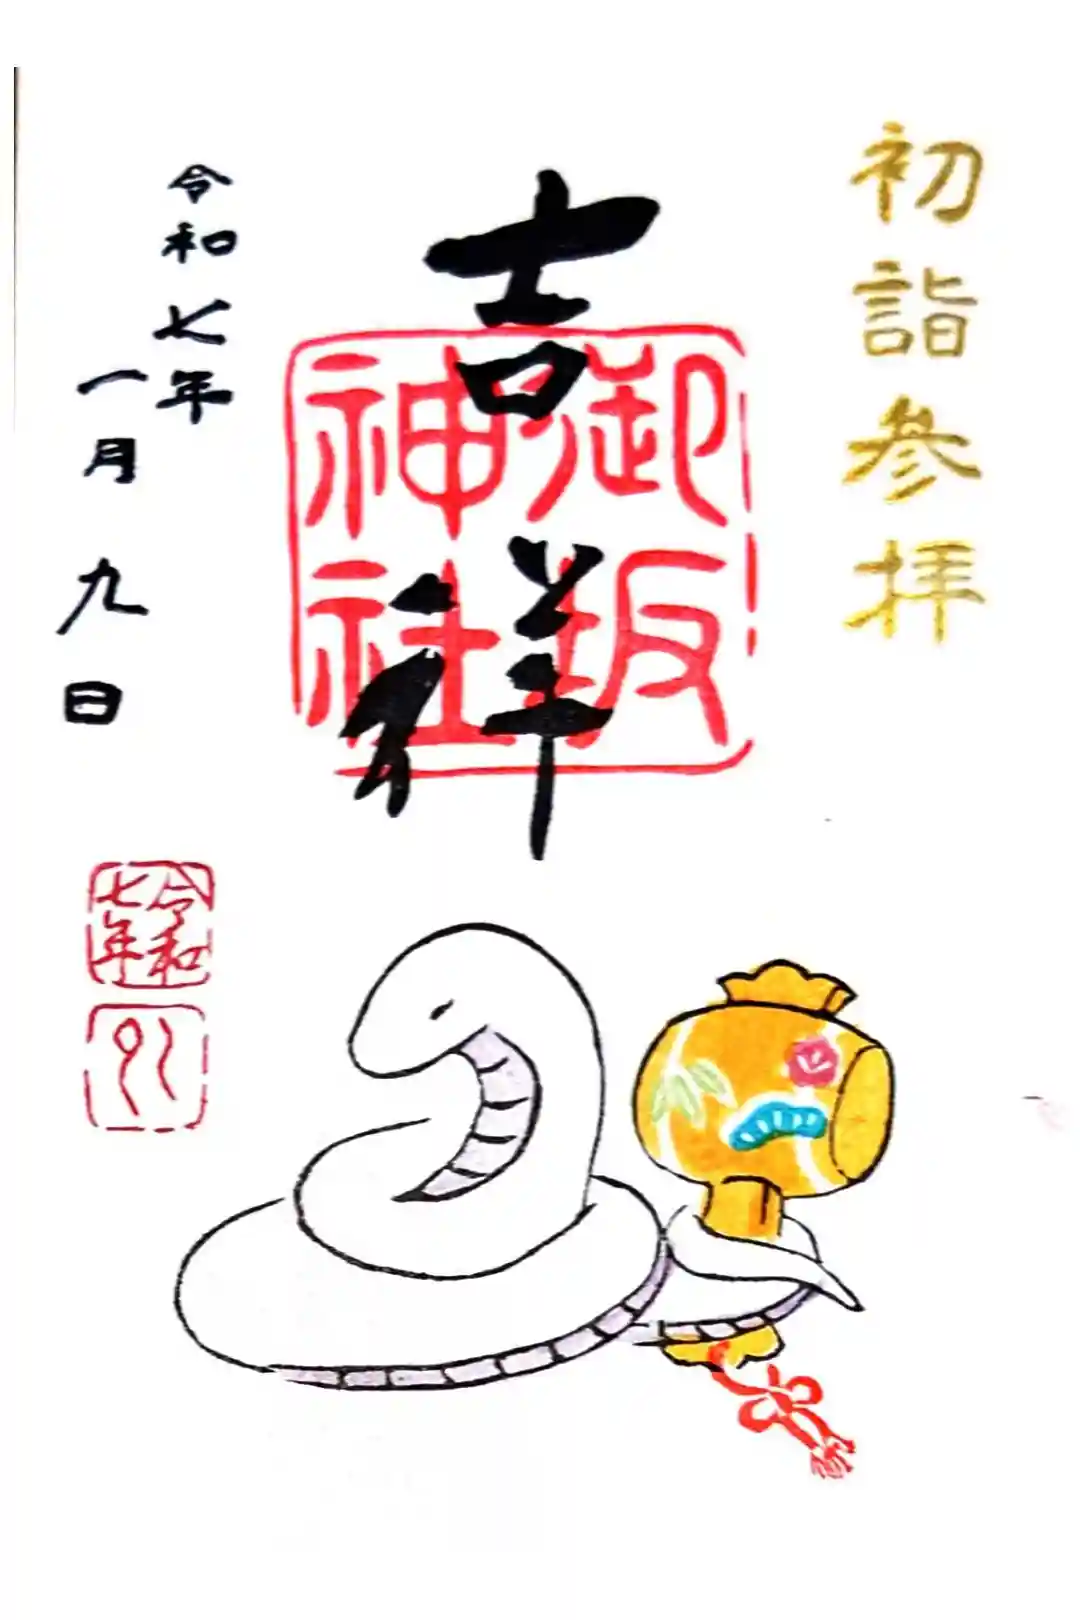 初詣参拝
吉祥
御坂
神社
令和七年
一月九日
令和
七年
巳